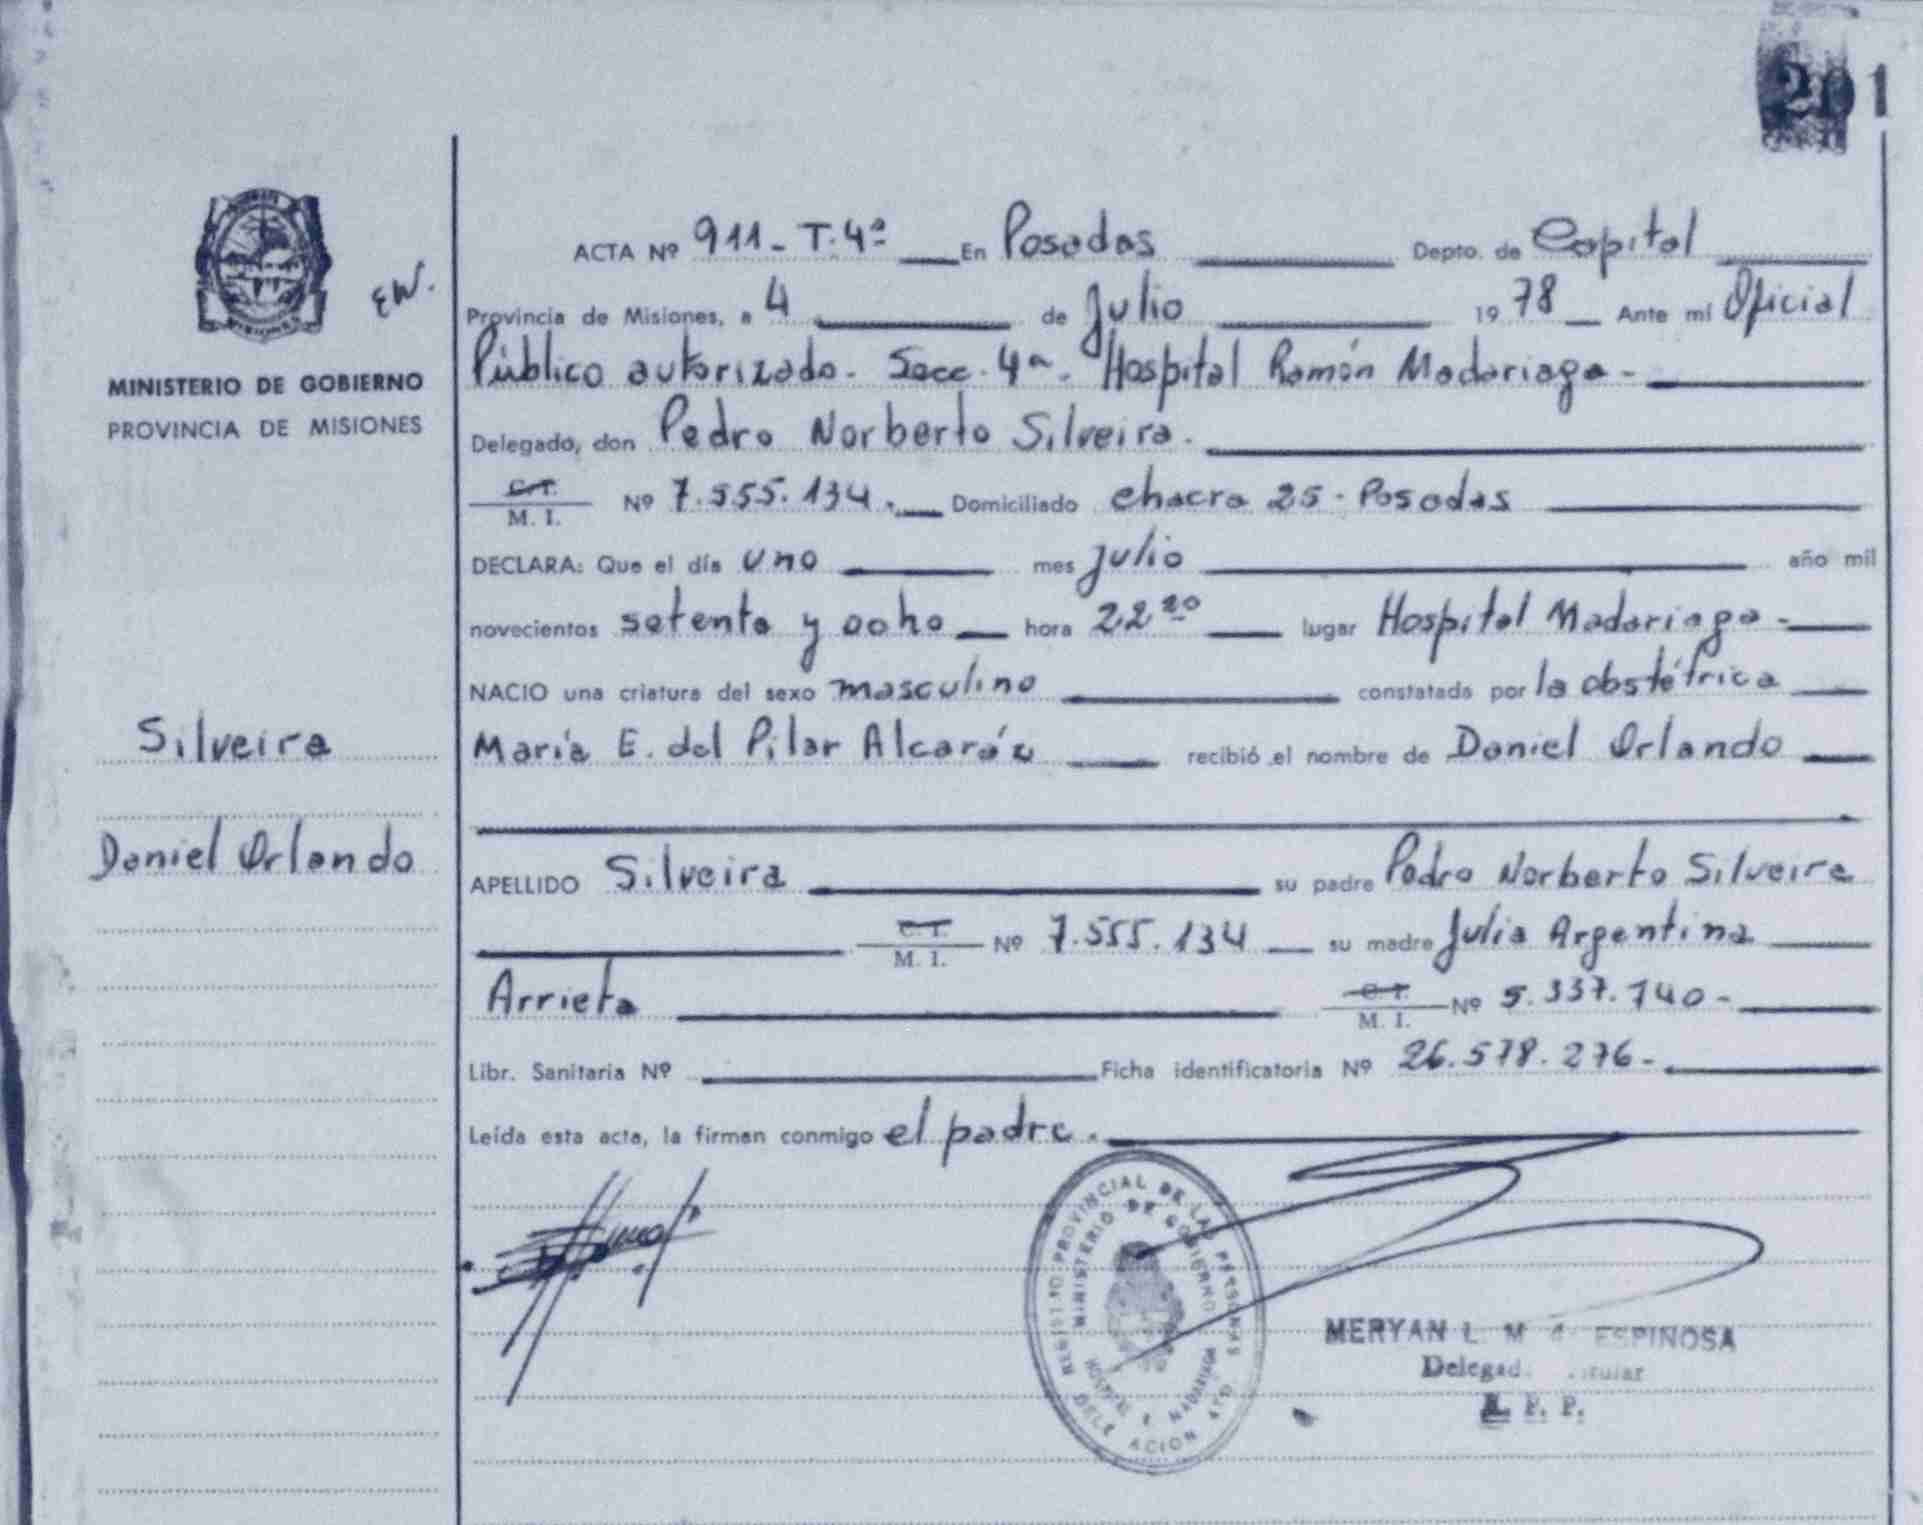 201
ACTA Nº 911 - T. 4º En Posadas Depto. de Capital
EW.
Provincia de Misiones, a 4 de Julio 1978 Ante mí Oficial
MINISTERIO DE GOBIERNO
PROVINCIA DE MISIONES
Público autorizado - Secc. 4ª - Hospital Ramón Madariaga -
Delegado, don Pedro Norberto Silveira.
C. I.
M. I. Nº 7.555.134. Domiciliado chacra 25 - Posadas
DECLARA: Que el día uno mes Julio año mil
novecientos setenta y ocho hora 22 20 lugar Hospital Madariaga -
NACIO una criatura del sexo masculino constatada por la obstétrica
Silveira
María E. del Pilar Alcaráz recibió el nombre de Daniel Orlando
Daniel Orlando
APELLIDO Silveira su padre Pedro Norberto Silveira
C. I.
M. I. Nº 7.555.134 su madre Julia Argentina
Arrieta C. I.
M. I. Nº 5.337.740 -
Libr. Sanitaria Nº Ficha identificatoria Nº 26.578.276 -
Leída esta acta, la firman conmigo el padre.
REGISTRO PROVINCIAL DE LAS PERSONAS
MINISTERIO DE GOBIERNO
HOSPITAL R MADARIAGA
DELEGACION
MERYAN L. M ESPINOSA